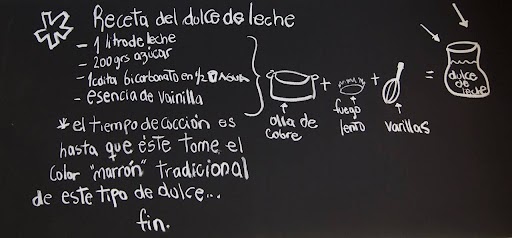 Receta del dulce de leche
- 1 litro de leche
- 200 grs azúcar
- 1 cdita bicarbonato en 1/2 AGUA
- esencia de vainilla
+ + =
dulce de leche
olla de cobre
fuego lento
varillas
* el tiempo de cocción es
hasta que éste tome el
color "marrón" tradicional
de este tipo de dulce...
fin.